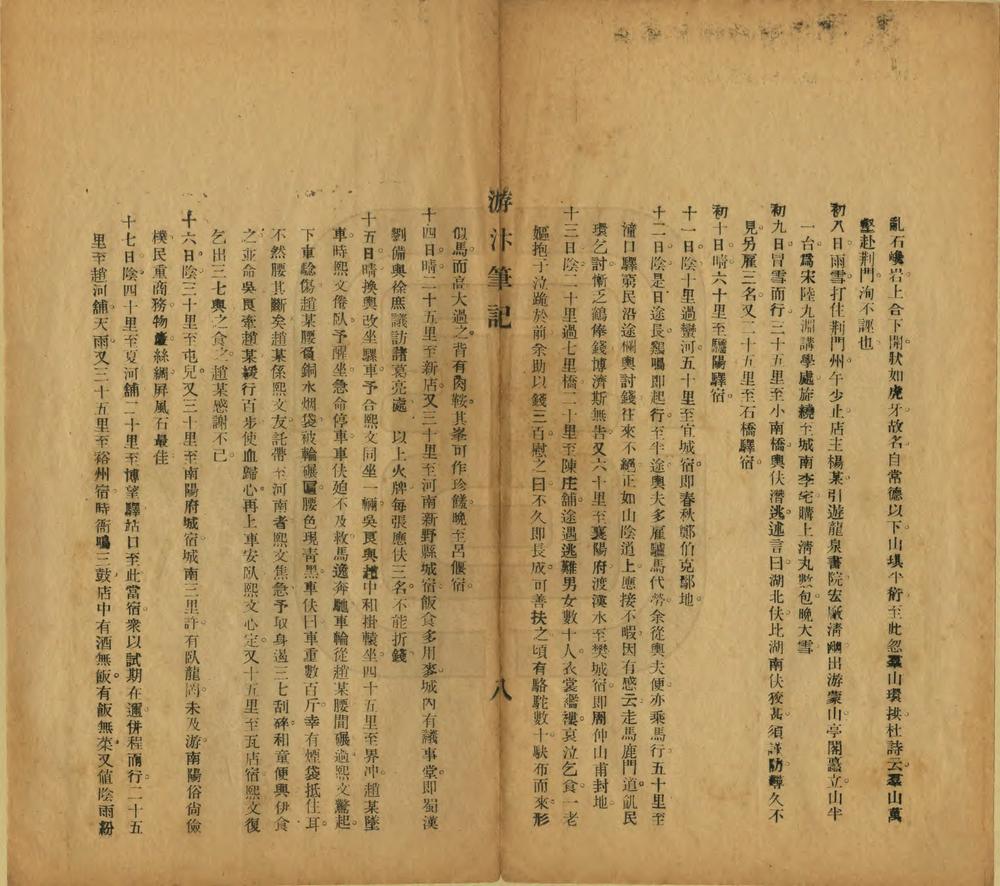 亂石巉岩上合下開狀如虎牙故名自常德以下山塡平衍至此忽羣山環拱杜詩云羣山萬
壑赴荆門洵不誣也
初八日雨雪打住荆門州午少止店主楊某引遊龍泉書院宏廠淸幽出游蒙山亭閣矗立山半
一台爲宋陸九淵講學處旋繞至城南李宅購上淸丸數包晚大雪
初九日冒雪而行三十五里至小南橋輿伕潛逃述言曰湖北伕比湖南伕狡甚須謹防尋久不
見另雇三名又二十五里至石橋驛宿
初十日晴六十里至驪陽驛宿
十一日陰十里過蠻河五十里至宜城宿即春秋鄭伯克鄢地
十二日陰是日途長鷄鳴即起行至半途輿夫多雇驢馬代勞余從輿夫便亦乘馬行五十里至
潼口驛窮民沿途攔輿討錢往來不絕正如山陰道上應接不暇因有感云走馬鹿門道飢民
環乞討慚乏鶴俸錢博濟斯無告又六十里至襄陽府渡漢水至樊城宿即周仲山甫封地
十三日陰二十里過七里橋二十里至陳庄舖途遇逃難男女數十人衣裳襤褸哀泣乞食一老
嫗抱子泣跪於前余助以錢三百慰之曰不久即長成可善扶之頃有駱駝數十駄布而來形
游汴筆記
八
似馬而高大過之背有肉鞍其峯可作珍饈晚至呂偃宿
十四日晴二十五里至新店又三十里至河南新野縣城宿飯食多用麥城內有議事堂即蜀漢
劉備與徐庶議訪諸葛亮處 以上火牌每張應伕三名不能折錢
十五日晴換輿改坐騾車予合熙文同坐一輛吳艮與趙中和掛轅坐四十五里至界冲趙某墜
車時熙文倦臥予醒坐急命停車車伕廹不及救馬逸奔馳車輪從趙某腰間碾過熙文驚起
下車騐傷趙某腰負銅水烟袋被輪碾匾腰色現靑黑車伕曰車重數百斤幸有煙袋抵住耳
不然腰其斷矣趙某係熙文友託帶至河南者熙文焦急予取身邊三七刮碎和童便與伊食
之並命吳艮牽趙某緩行百步使血歸心再上車安臥熙文心定又十五里至瓦店宿熙文復
乞出三七與之食之趙某感謝不已
十六日陰三十里至屯兒又三十里至南陽府城宿城南三里許有臥龍岡未及游南陽俗尙儉
樸民重商務物產絲綢屏風石最佳
十七日陰四十里至夏河舖二十里至博望驛站口至此當宿衆以試期在邇併程而行二十五
里至趙河舖天雨又三十五里至裕州宿時衙鳴三鼓店中有酒無飯有飯無菜又値陰雨紛